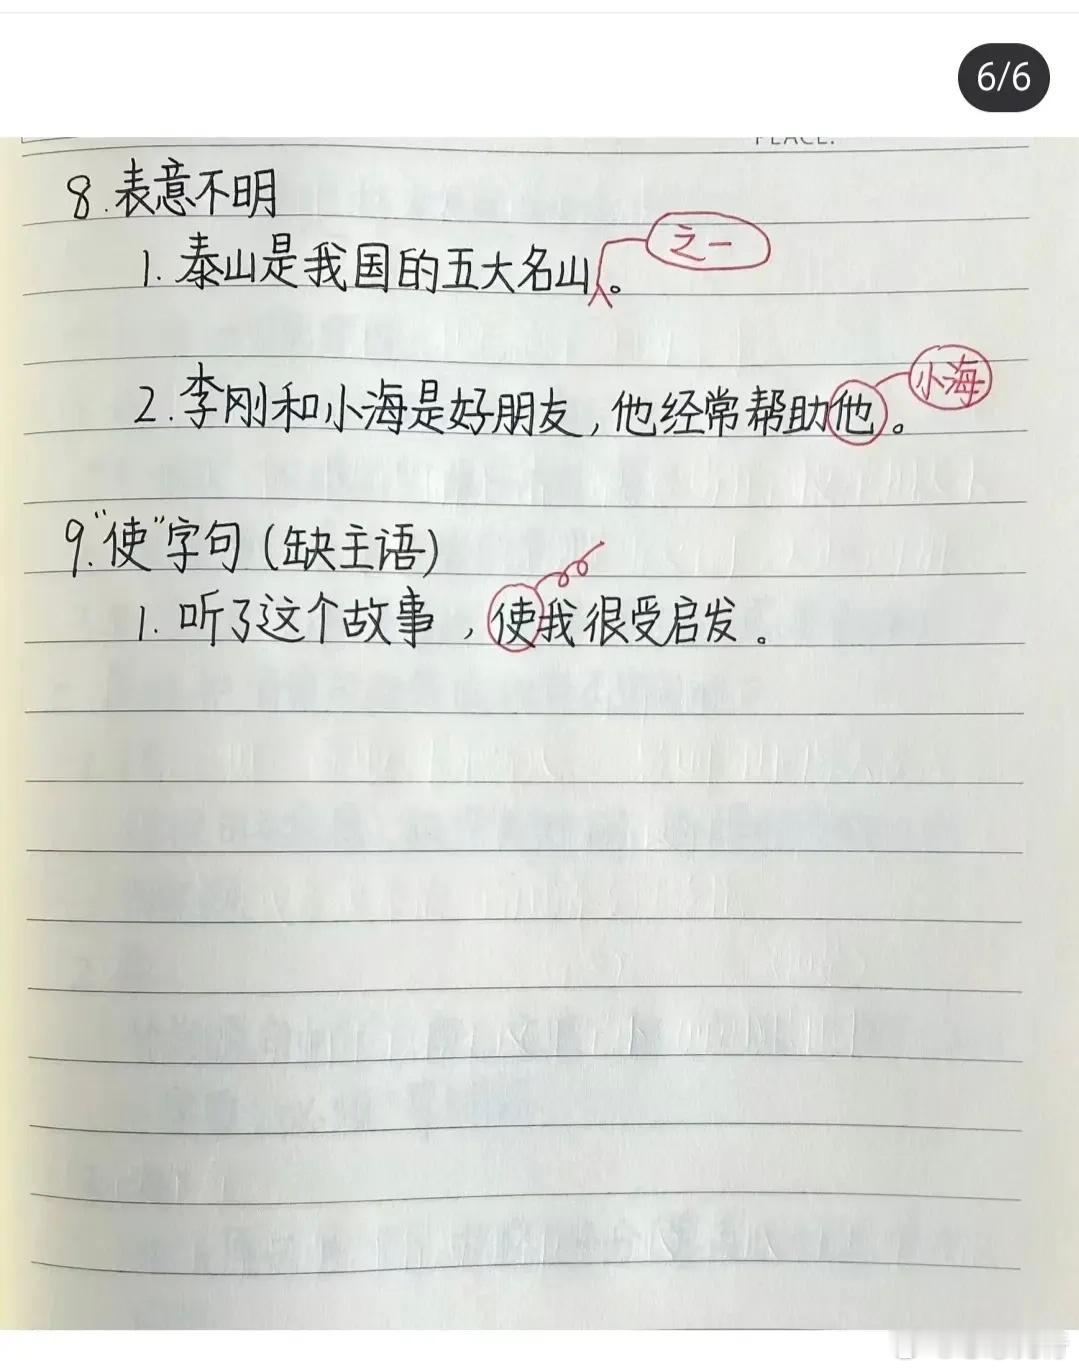 6/6
PLACE.
8.表意不明
之一
1.泰山是我国的五大名山。
小海
2.李刚和小海是好朋友,他经常帮助他。
9."使"字句(缺主语)
1.听了这个故事,使我很受启发。